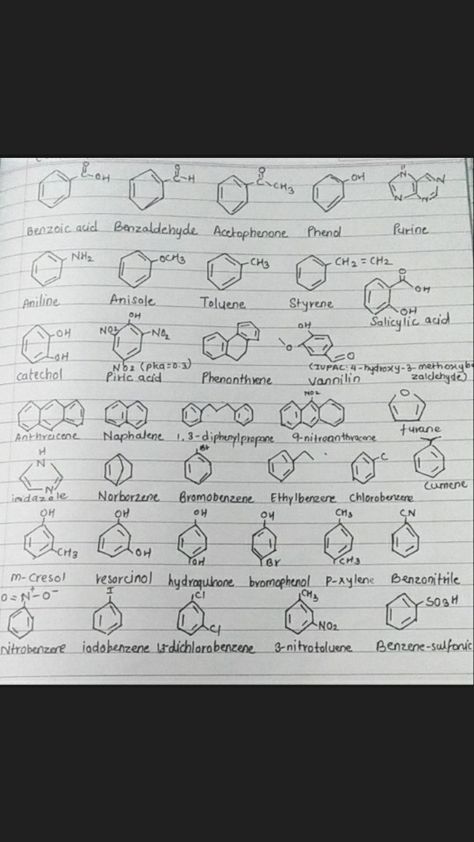 O
C-OH
O
C-H
O
C-CH3
OH
N
N
N
N
Benzoic acid Benzaldehyde Acetophenone Phenol Purine
NH2
OCH3
CH3
CH2=CH2
O
OH
OH
Aniline Anisole Toluene Styrene
Salicylic acid
OH
OH
OH
NO2
NO2
NO2 (pka=0.3)
OH
O
O
catechol Picric acid Phenonthrene vannilin
(IUPAC: 4-hydroxy-3-methoxyben
zaldehyde)
NO2
O
Anthracene Naphalene 1,3-diphenylpropane 9-nitroanthracene furane
H
N
N
Br
C
imidazole Norborzene Bromobenzene Ethylbenzene Chlorobenzene
Cumene
OH
CH3
OH
OH
OH
OH
OH
Br
CH3
CH3
CN
m-cresol resorcinol hydroquinone bromophenol P-xylene Benzonitrile
O=N+-O-
I
Cl
Cl
CH3
NO2
SO3H
nitrobenzene iodobenzene dichlorobenzene 3-nitrotoluene Benzene-sulfonic